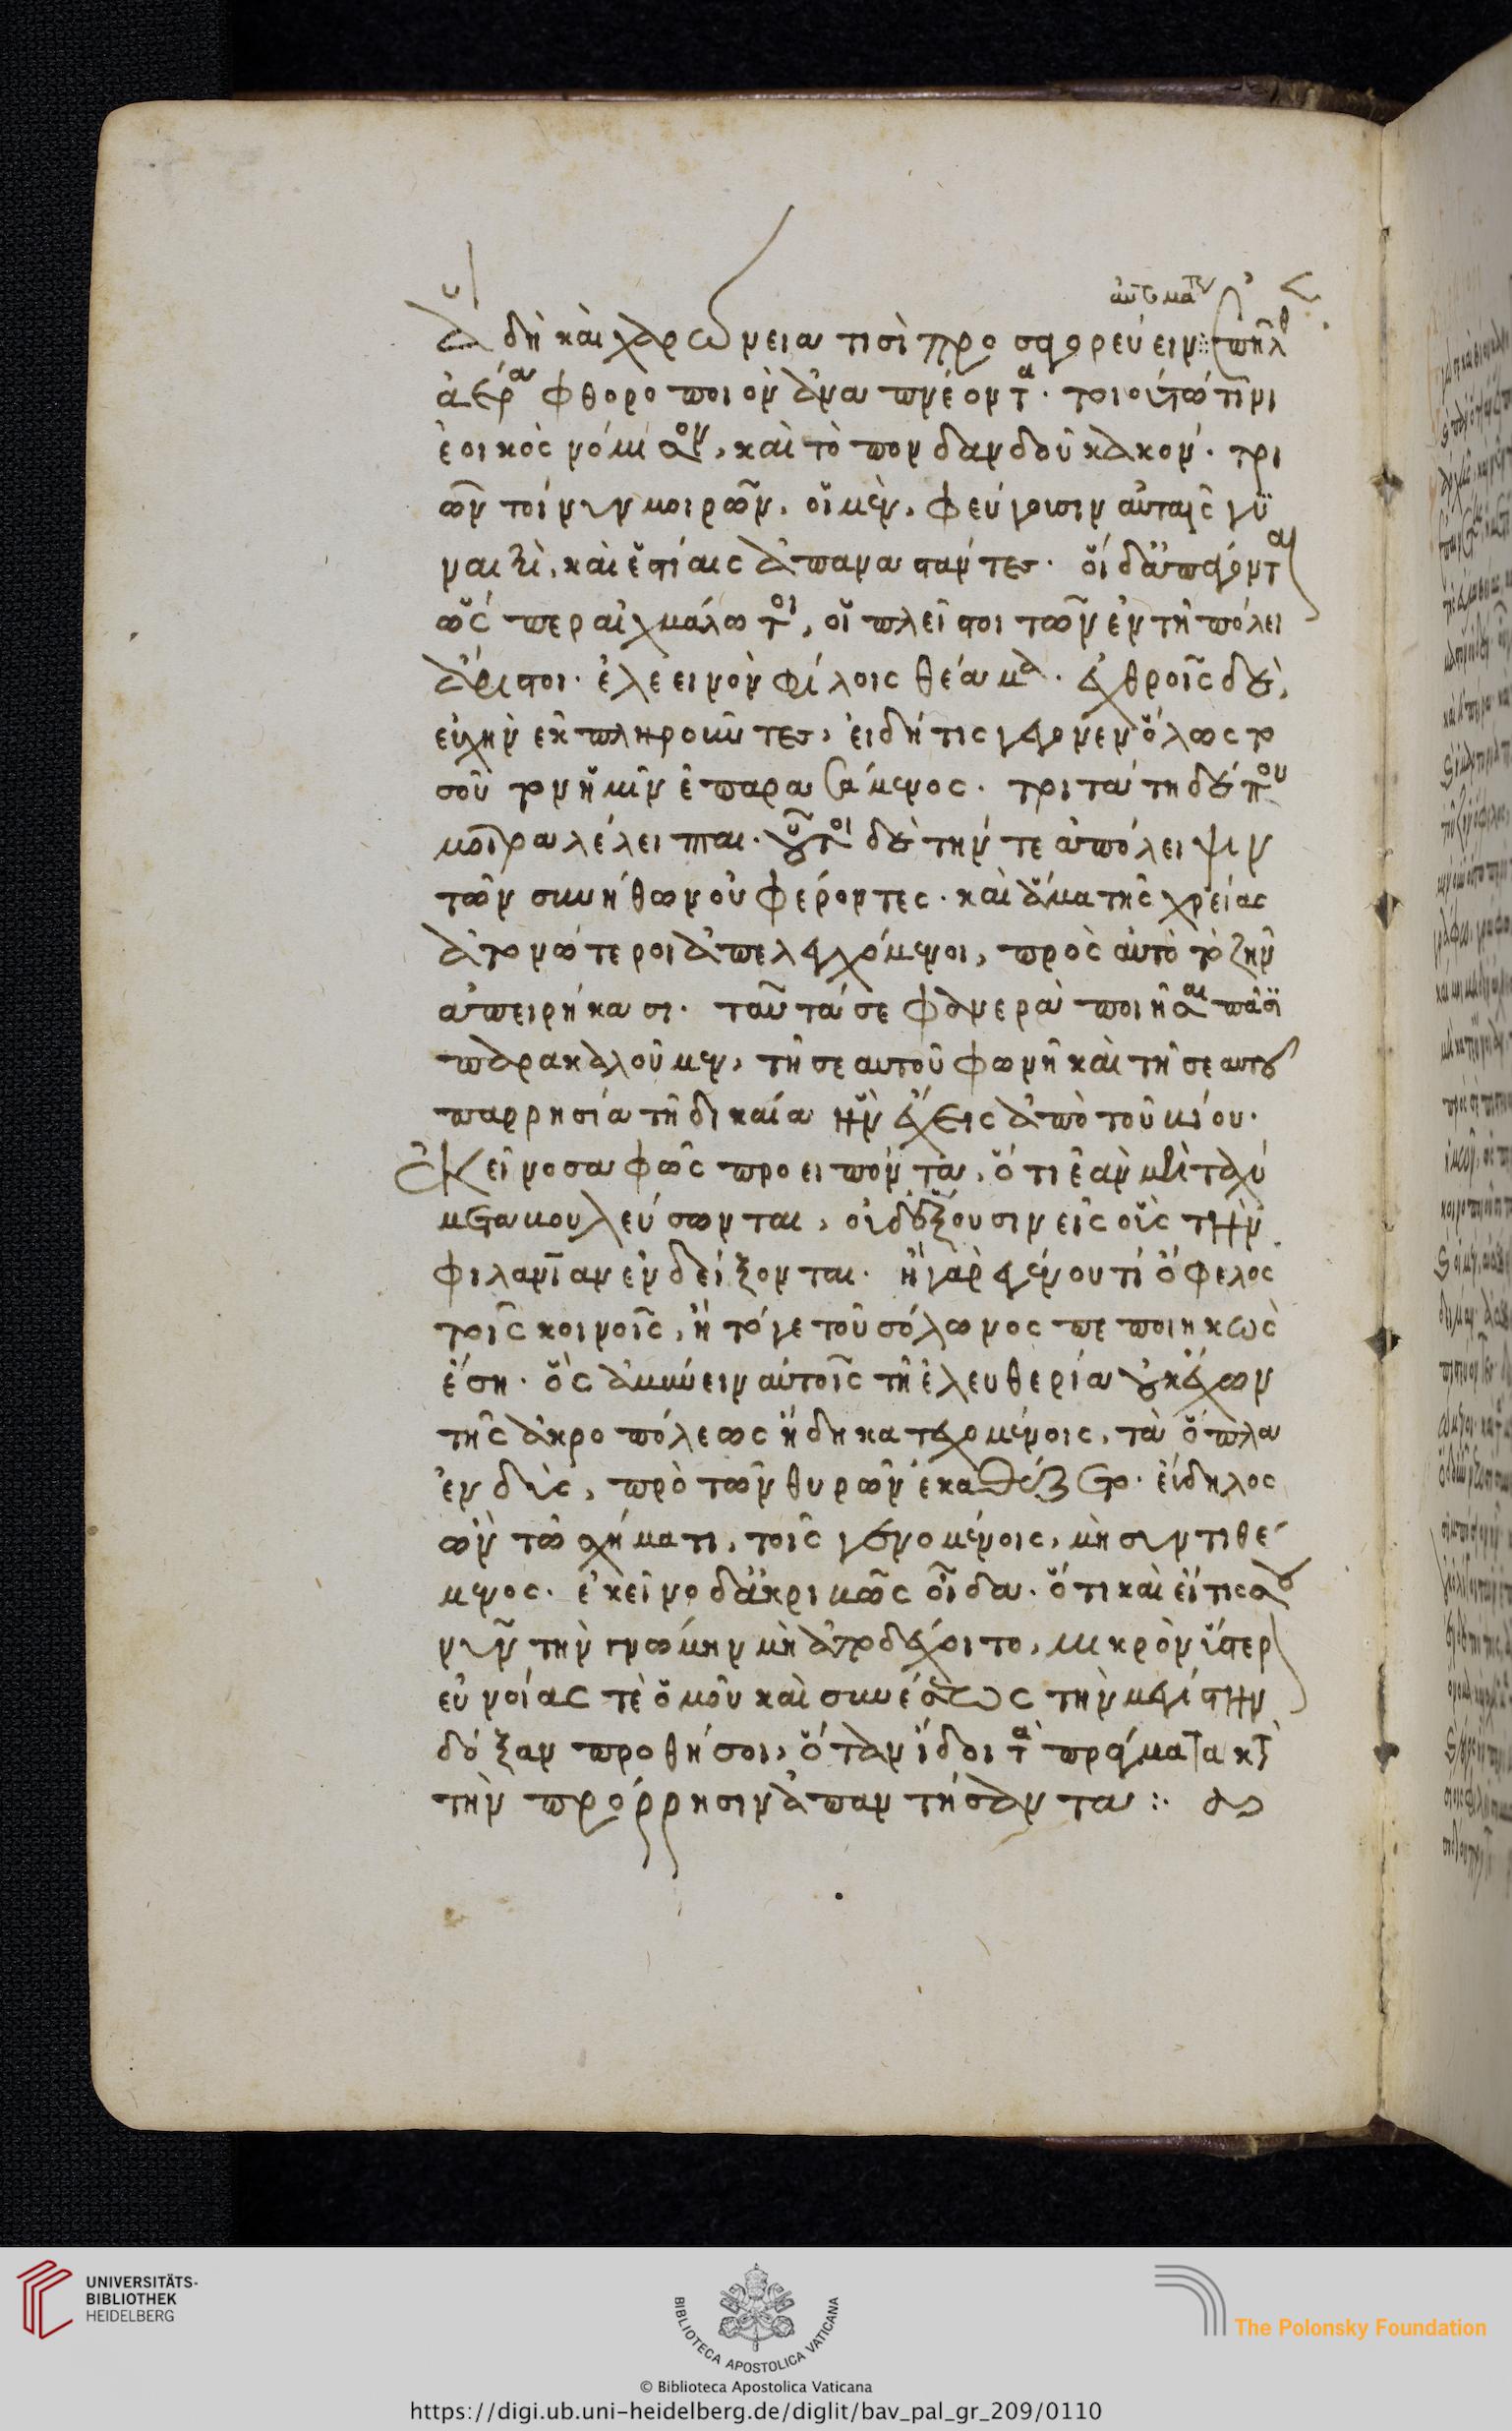 ἃ δὴ καὶ χαρώνεια τισὶ προσαγορεύειν
ἀέρα φθοροποιὸν ἄνα πνέοντα. τοιούτω τινὶ
ἐοικὸς νόμισον, καὶ τὸ πονδανδοῦ κακόν. τρι
ῶν τοίνυν μοιρῶν, οἱ μὲν, φεύγουσιν αὐταῖς γϋ
ναιξὶ, καὶ ἑστίαις ἀπαναστάντες. οἱ δ' ἄπάγονται
ὥσπερ αἰχμάλωτοι, οἱ πλεῖστοι τῶν ἐν τῆ πόλει
ἄριστοι. ἐλεεινὸν φίλοις θέαμα. ἐχθροῖς δὲ,
εὐχὴν ἐκπληροῦντες, εἰ δή τις γέγονεν ὅλως το
σοῦτον ἡμῖν ἐπαρασάμενος. τρίτα τη δέ που
μοῖρα λέλειπται. οὗτοι δὲ τήν τε ἀπόλειψιν
τῶν συνήθων οὐ φέροντες. καὶ ἅμα τῆς χρείας
ἀτονώτεροι ἀπελεγχόμενοι, πρὸς αὐτὸ τὸ ζῆν
ἀπειρήκασι. ταῦτά σε φανερὰ ποιῆσαι πᾶσι
παρακαλοῦμεν, τῆ σεαυτοῦ φωνῆ καὶ τῆ σεαυτοῦ
παρρησία τῆ δικαία ἣν ἔχεις ἀπὸ τοῦ βίου.
Ἐκεῖνο σαφῶς προειπόντα, ὅτι ἐὰν μὴ ταχύ
μεταβουλεύσωνται, οὐδ' ἕξουσιν εἰς οὓς τὴν
φιλανίαν ἐνδείξονται. ἢ γὰρ γένου τί ὄφελος
τοῖς κοινοῖς, ἢ τό γε τοῦ σόλωνος πεποιηκὼς
ἔση. ὃς ἀμύνειν αὐτοῖς τῆ ἐλευθερία οὐκ ἔχων
τῆς ἀκροπόλεως ἤδη κατεχομένοις, τὰ ὅπλα
ἐνδὺς, πρὸ τῶν θυρῶν ἐκαθέζετο. εἴδηλος
ὢν τῶ σχήματι, τοῖς γενομένοις, μὴ συντιθέ
μενος. ἐκεῖνο δ' ἄκριβῶς οἶδα. ὅτι καὶ εἴ τις σου
νῦν τὴν γνώμην μὴ ἀποδέχοιτο, μικρὸν ὕστερ
εὐνοίας τὲ ὁμοῦ καὶ συνέσεως τὴν μεγίστην
δόξαν προσθήσοι, ὅταν ἴδοι τὰ πράγματα κατὰ
τὴν πρόρρησιν ἀπαντήσαντα :·
UNIVERSITÄTS-
BIBLIOTHEK
HEIDELBERG
BIBLIOTECA APOSTOLICA VATICANA
The Polonsky Foundation
© Biblioteca Apostolica Vaticana
https://digi.ub.uni-heidelberg.de/diglit/bav_pal_gr_209/0110